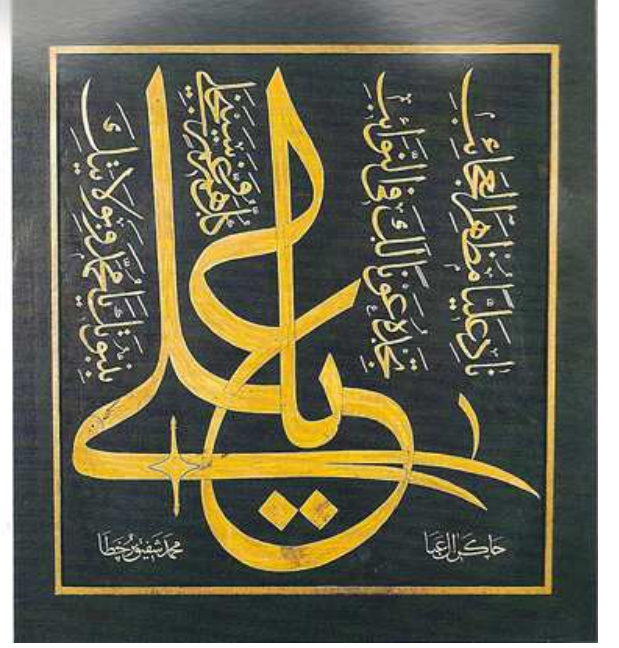 نَادِ عَلِيًّا مُظْهِرَ الْعَجَائِبِ
تَجِدْهُ عَوْنًا لَكَ فِي النَّوَائِبِ
كُلُّ هَمٍّ وَغَمٍّ سَيَنْجَلِي
بِنُبُوَّتِكَ يَا مُحَمَّدُ وَبِوَلَايَتِكَ
يا علي
خاك آل عبا
محمد شفيق خطا